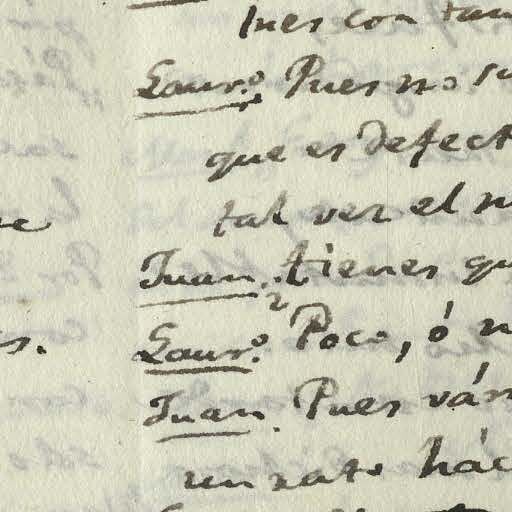 Ines con tan
Laur.º Pues no su
que es defect
tal vez el n
Juan. ¿tienes qu
Laur.º Poco, ó n
Juan. Pues ván
un rato hác